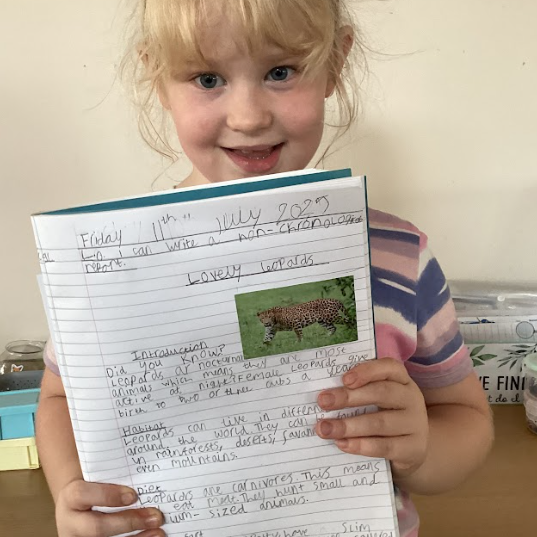 Friday 11th July 2025
L.O. I can write a non-chronological
report.
Lovely leopards
Introduction
Did you know?
Leopards ar nocturnal
animals which means they are most
active at night? Female leopards give
birth to two or three cubs a year.
Habitat
Leopards can live in differen
around the world. They can
found
in rainforests, deserts, savan
even mountains.
Diet
Leopards are carnivores. This means
eat meat. They hunt small and
ium-sized animals.
have slim
VE FIN